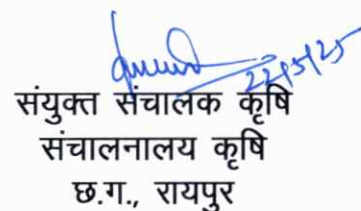 22/5/25
संयुक्त संचालक कृषि
संचालनालय कृषि
छ.ग., रायपुर